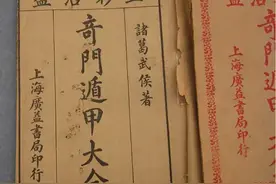 奇門遁
上海廣益書局
諸葛武侯著
奇門遁甲大全
上海廣益書局印行